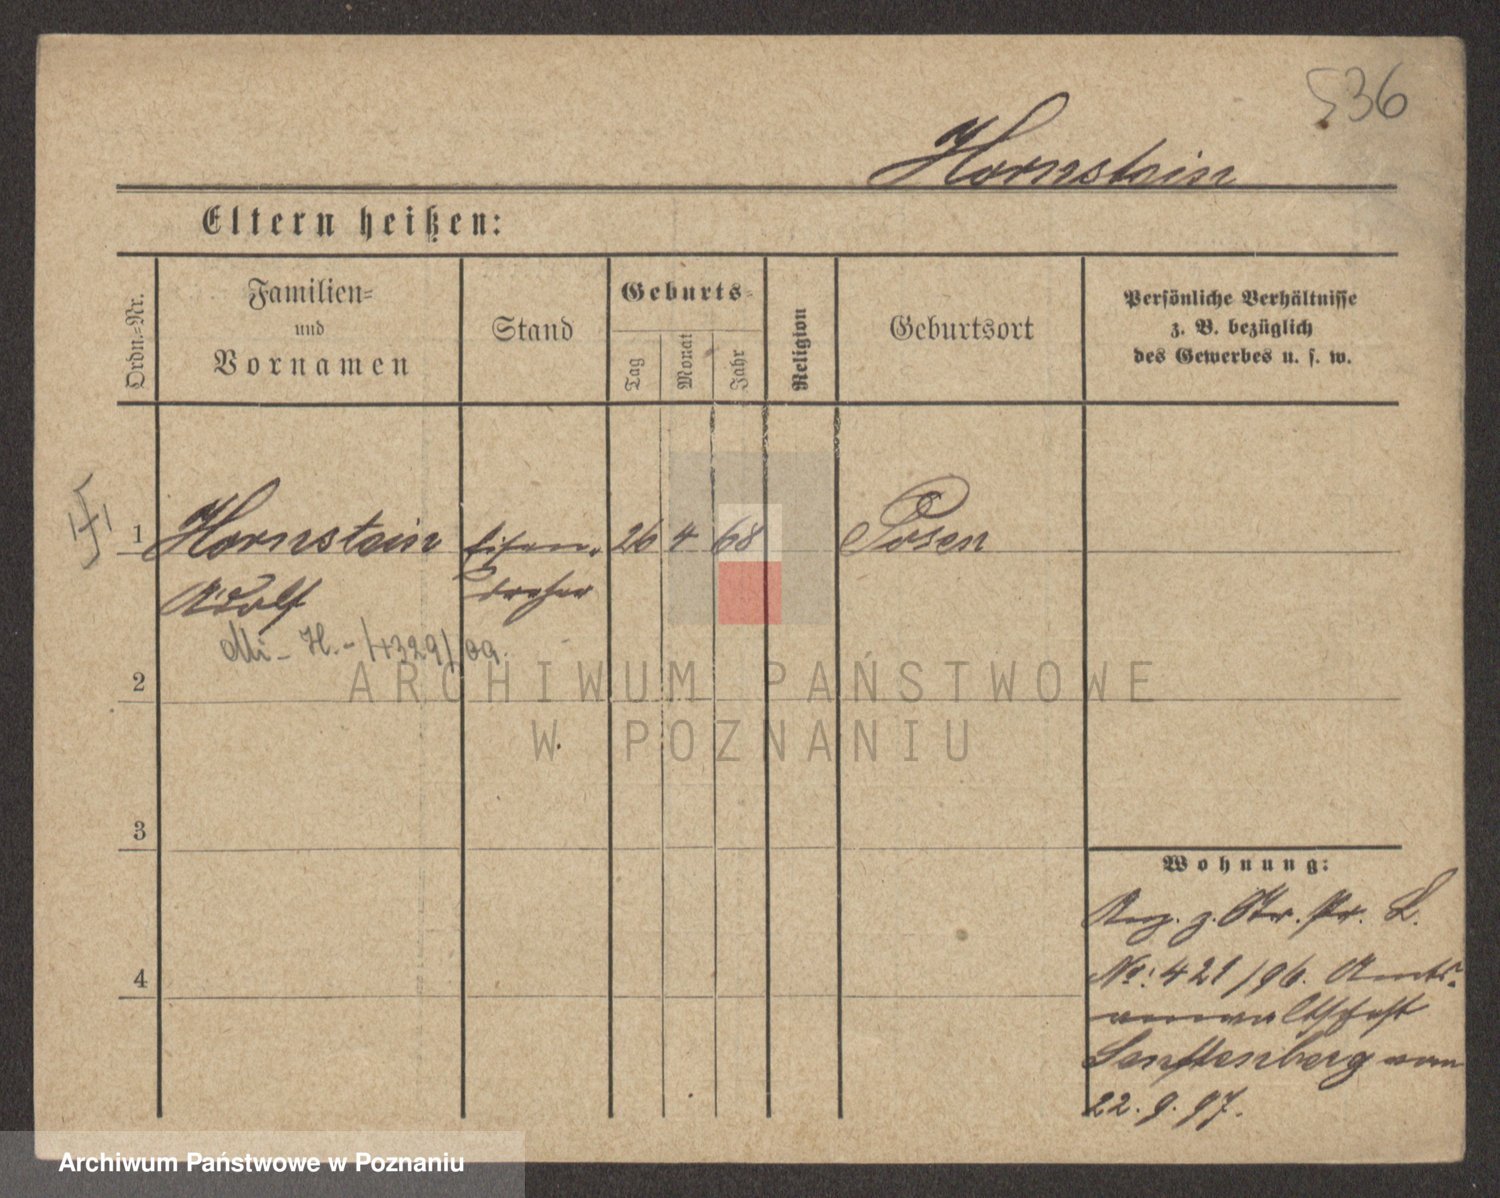 536
Hornstein
Eltern heißen:
Ordn.=Nr.
Familien=
und
Vornamen
Stand
Geburts=
Tag
Monat
Jahr
Religion
Geburtsort
Persönliche Verhältnisse
z. B. bezüglich
des Gewerbes u. s. w.
1 Hornstein Eisen- 26 4 68 Posen
Adolf dreher
Mi - H. - 14329/09.
2
3
4
Wohnung:
Anz. z. Str. Pr. L.
No: 421/96. Amts-
anwaltschaft
Senftenberg vom
22. 9. 97.
ARCHIWUM PAŃSTWOWE
W POZNANIU
Archiwum Państwowe w Poznaniu